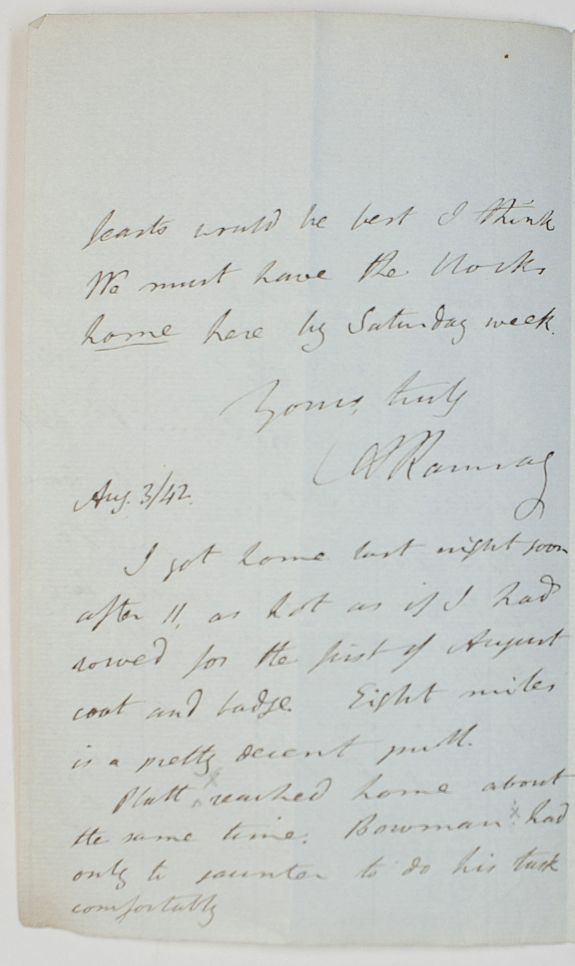 hearts would be best I think
We must have the blocks
home here by Saturday week.
Yours truly
A C Ramsay
Aug. 3/42.
I got home last night soon
after 11, as hot as if I had
rowed for the first of August
coat and badge. Eight miles
is a pretty decent pull.
Platt x reached home about
the same time. Bowman x had
only to saunter to do his task
comfortably